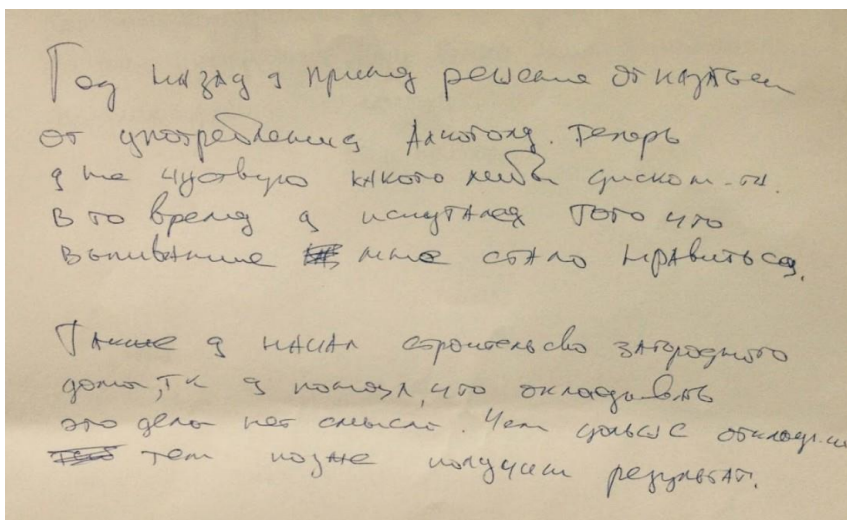 Год назад я принял решение отказаться
от употребления Алкоголя. Теперь
я не чуствую какого либо диском-та.
В то время я испугался того что
выпивание мне стало нравиться.
Также я начал строительство загородного
дома, тк я понял, что откладывать
это дело нет смысла. Чем дольше отклад.
тем позже получим результат.